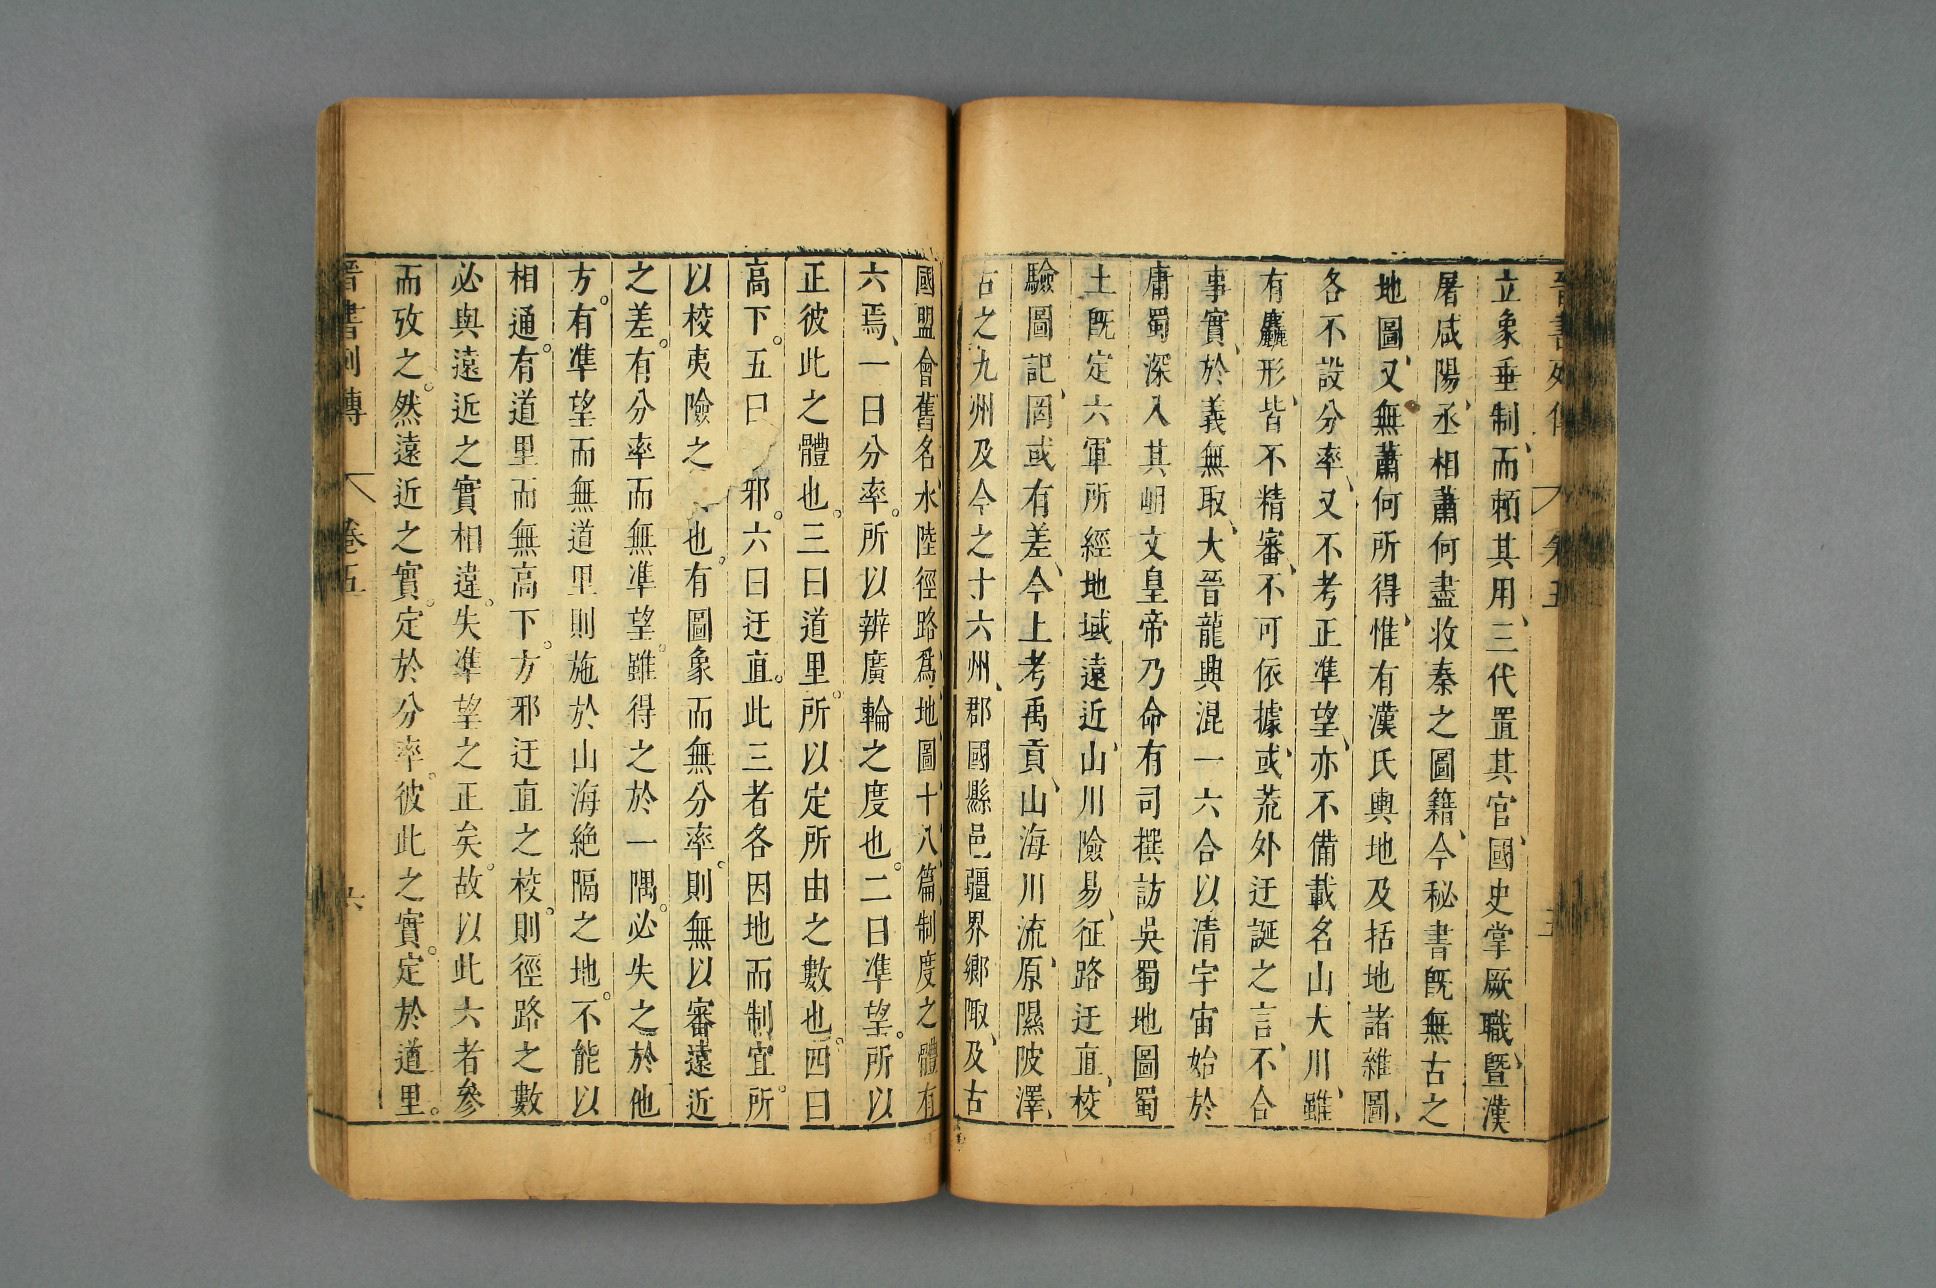 晉書列傳 卷五 五
立象垂制、而賴其用、三代置其官、國史掌厥職、暨漢
屠咸陽、丞相蕭何盡收秦之圖籍、今秘書旣無古之
地圖、又無蕭何所得、惟有漢氏輿地及括地諸雜圖、
各不設分率、又不考正準望、亦不備載名山大川、雖
有麤形、皆不精審、不可依據、或荒外迂誕之言、不合
事實、於義無取、大晉龍興混一六合以清宇宙始於
庸蜀深入其岨文皇帝乃命有司撰訪吳蜀地圖蜀
土旣定六軍所經地域遠近、山川險易、征路迂直、校
驗圖記、罔或有差、今上考禹貢、山海川流、原隰陂澤、
古之九州及今之十六州、郡國縣邑疆界鄉陬、及古
國盟會舊名、水陸徑路、爲地圖十八篇、制度之體有
六焉、一曰分率。所以辨廣輪之度也。二曰準望。所以
正彼此之體也。三曰道里。所以定所由之數也。四曰
高下。五曰 邪。六曰迂直。此三者各因地而制宜。所
以校夷險之 也。有圖象而無分率。則無以審遠近
之差。有分率而無準望。雖得之於一隅。必失之於他
方。有準望而無道里則施於山海絶隔之地。不能以
相通。有道里而無高下。方邪迂直之校。則徑路之數
必與遠近之實相違。失準望之正矣。故以此六者參
而攷之。然遠近之實。定於分率。彼此之實。定於道里。
晉書列傳 卷五 六